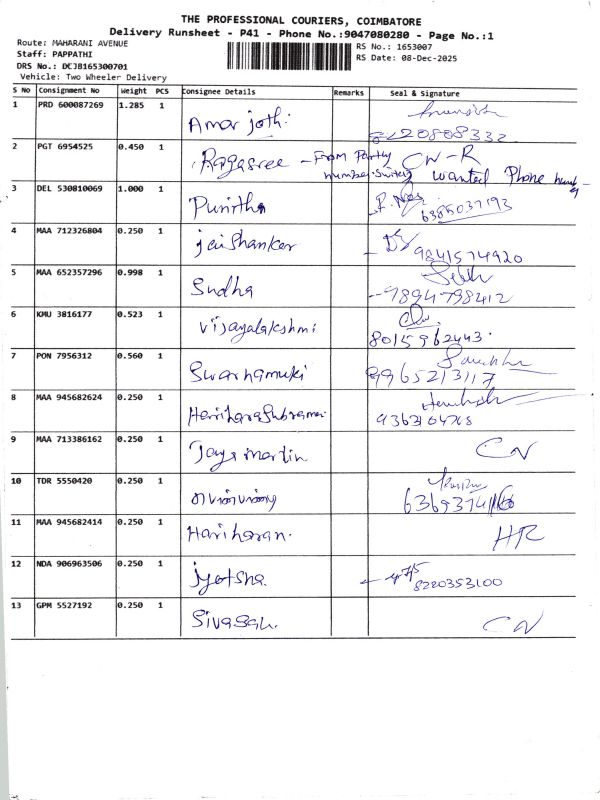 THE PROFESSIONAL COURIERS, COIMBATORE
Delivery Runsheet - P41 - Phone No.:9047080280 - Page No.:1
Route: MAHARANI AVENUE
Staff: PAPPATHI
DRS No.: DCJB165300701
Vehicle: Two Wheeler Delivery
RS No.: 1653007
RS Date: 08-Dec-2025
S No Consignment No Weight PCS Consignee Details Remarks Seal & Signature
1 PRD 600087269 1.285 1 Amar jothi 8220808332
2 PGT 6954525 0.450 1 Ragasree - From Party number switch CN-R wanted Phone number
3 DEL 530810069 1.000 1 Punitha 6385037193
4 MAA 712326804 0.250 1 jaishankar 9841574920
5 MAA 652357296 0.998 1 Sudha 9894798412
6 KMU 3816177 0.523 1 Vijayalakshmi 8015962443
7 PON 7956312 0.560 1 Swarnamuki 9965213117
8 MAA 945682624 0.250 1 Hariharasubrama
9 MAA 713386162 0.250 1 Jaya martin CN
10 TDR 5550420 0.250 1
11 MAA 945682414 0.250 1 Hariharan. HR
12 NDA 906963506 0.250 1 jyotsha 8220353100
13 GPM 5527192 0.250 1 CN